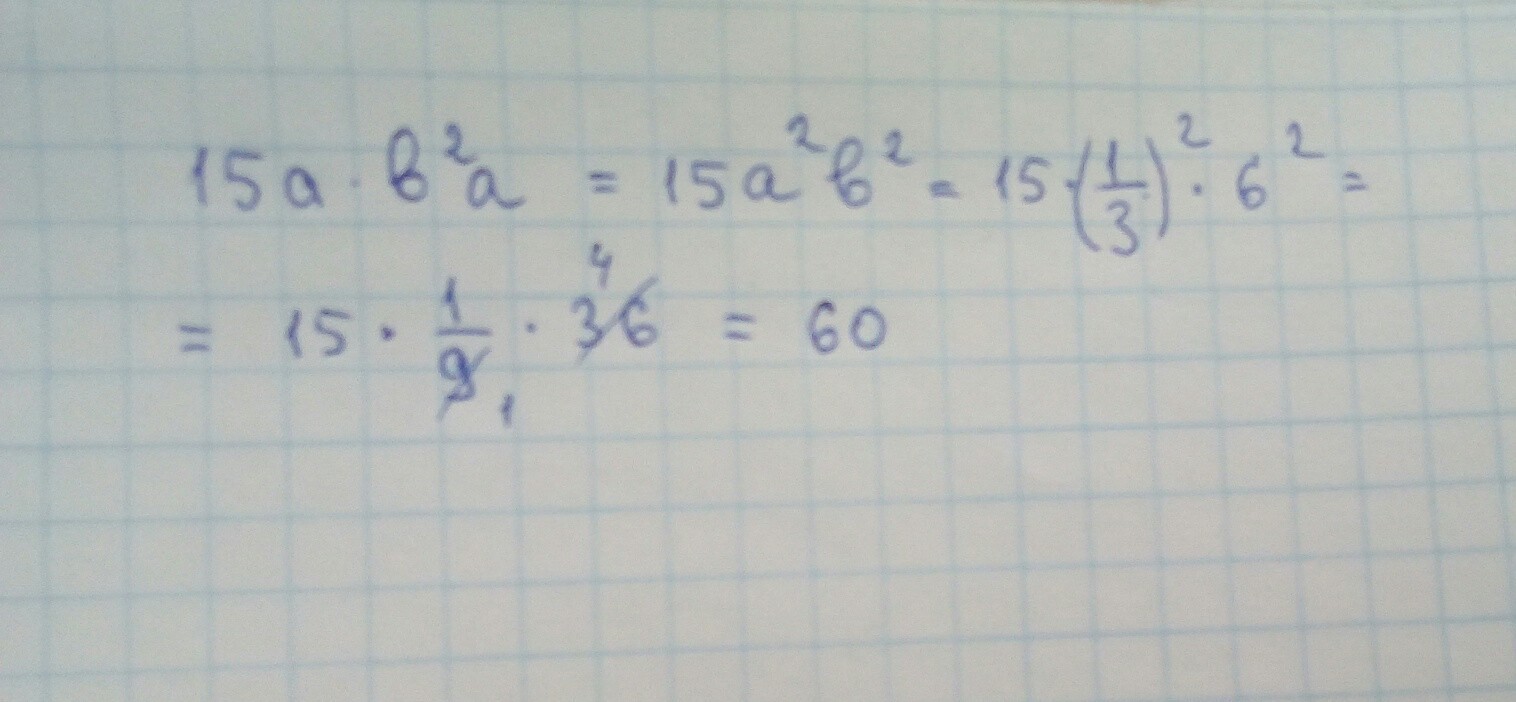 15a · b²a = 15a²b² = 15·(1/3)² · 6² =
= 15 · 1/9 1 · 36 4 = 60